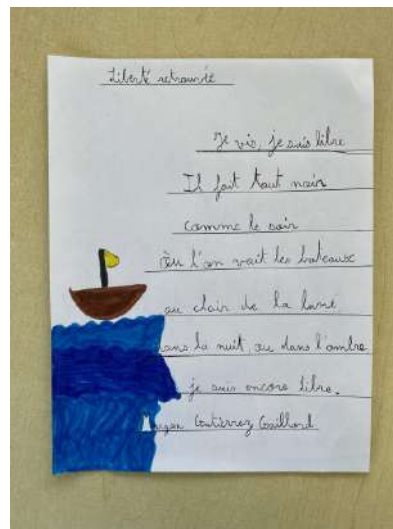 Liberté retrouvée
Je vis, je suis libre
Il fait tout noir
comme le soir
où l'on voit les bateaux
au clair de la lune
dans la nuit ou dans l'ombre
je suis encore libre.
Gutiérrez Gaillard